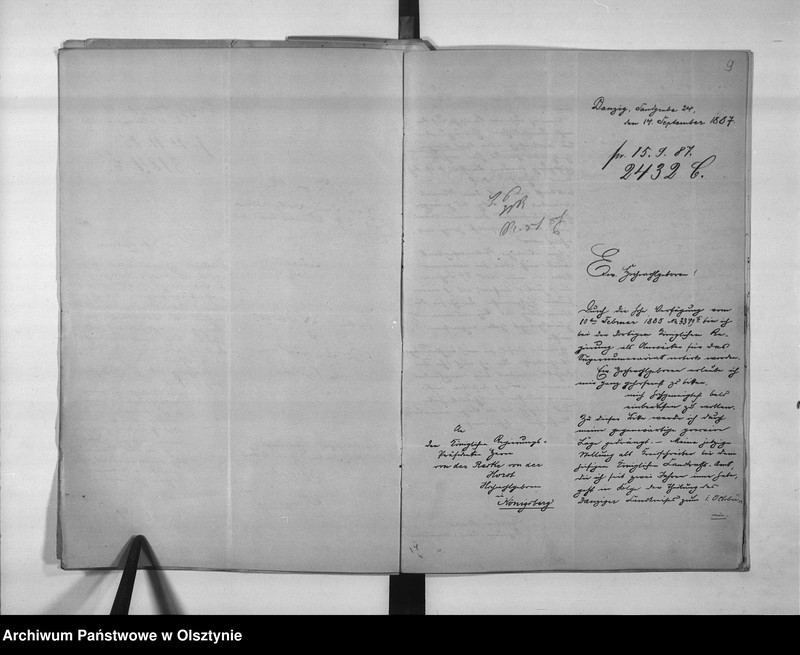 9
Danzig, Sandgrube 24,
den 14. September 1887.
pr. 15. 9. 87.
2432 C.
Ew. Hochwohlgeboren!
Durch die hohe Verfügung vom
10ten Februar 1885 No 2379 bin ich
bei der dortigen Königlichen Re-
gierung als Anwärter für das
Supernumerariat notirt worden.
Ew. Hochwohlgeboren erlaube ich
mir ganz gehorsamst zu bitten,
mich hochgeneigtest bald
einberufen zu wollen.
Zu dieser Bitte werde ich durch
meine gegenwärtige prekäre
Lage gedrängt. – Meine jetzige
Stellung als Kreisschreiber bei dem
hiesigen Königlichen Landraths-Amt,
die ich seit zwei Jahren inne habe,
geht in Folge der Theilung des
Danziger Landkreises zum 1. Oktober
An
den Königlichen Regierungs-
Präsidenten Herrn
von der Recke von der
Horst
Hochwohlgeboren
Königsberg
Archiwum Państwowe w Olsztynie